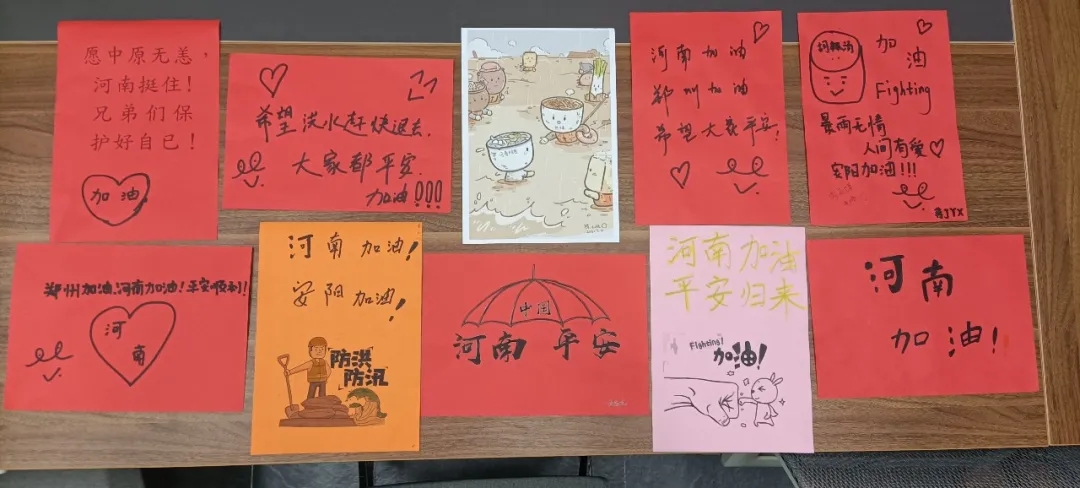 愿中原无恙，
河南挺住！
兄弟们保
护好自己！
加油
希望洪水赶快退去.
大家都平安.
加油!!!
河南加油
郑州加油
希望大家平安!
加
油
Fighting
暴雨无情
人间有爱
安阳加油!!!
郑州加油.河南加油!平安顺利!!
河
南
河南 加油!
安阳加油!
防洪
防汛
中国
河南 平安
河南加油
平安归来
Fighting!
加油!
河南
加油!